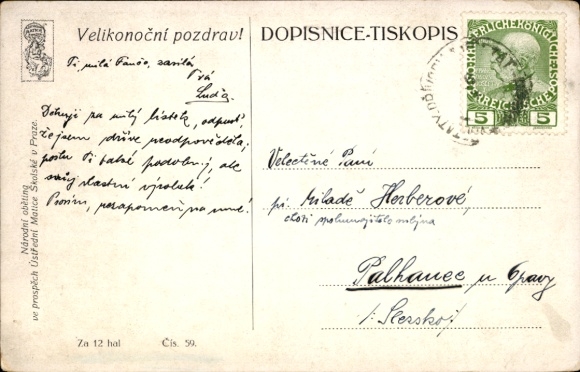 Velikonoční pozdrav!
Ti, milá Fančo, zasílá
Tvá
Luďa.
Děkuji za milý lístek, odpusť,
že jsem dříve neodpověděla,
pošlu Ti také podobný, ale
svůj vlastní výrobek!
Prosím, nezapomeň na mne!
Národní obětina
ve prospěch Ústřední Matice Školské v Praze.
Za 12 hal
Čís. 59.
DOPISNICE-TISKOPIS
KAISERLICHE KÖNIGLICHE
ÖSTERREICHISCHE POST
5 5
Velectěné Paní
pí. Miladě Herberové,
choti spolumajitele mlýna
Palhanec u Opavy
/: Slezsko :/